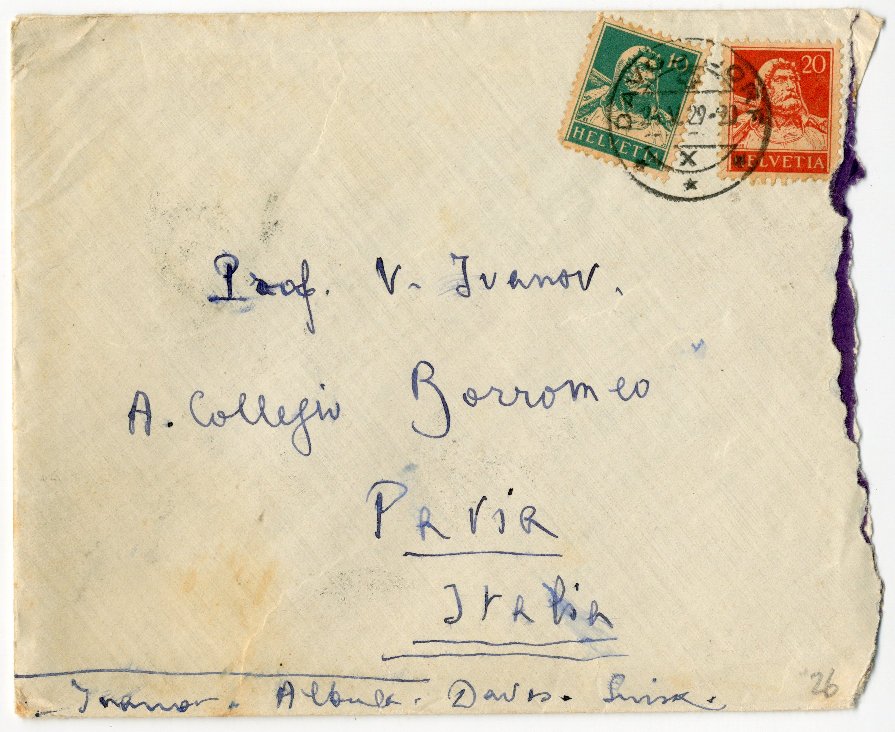 10
20
HELVETIA
HELVETIA
DAVOS
29
X
Prof. V. Ivanov.
A. Collegio Borromeo
Pavia
Italia
Ivanov. Albula. Davos. Suisse.
26